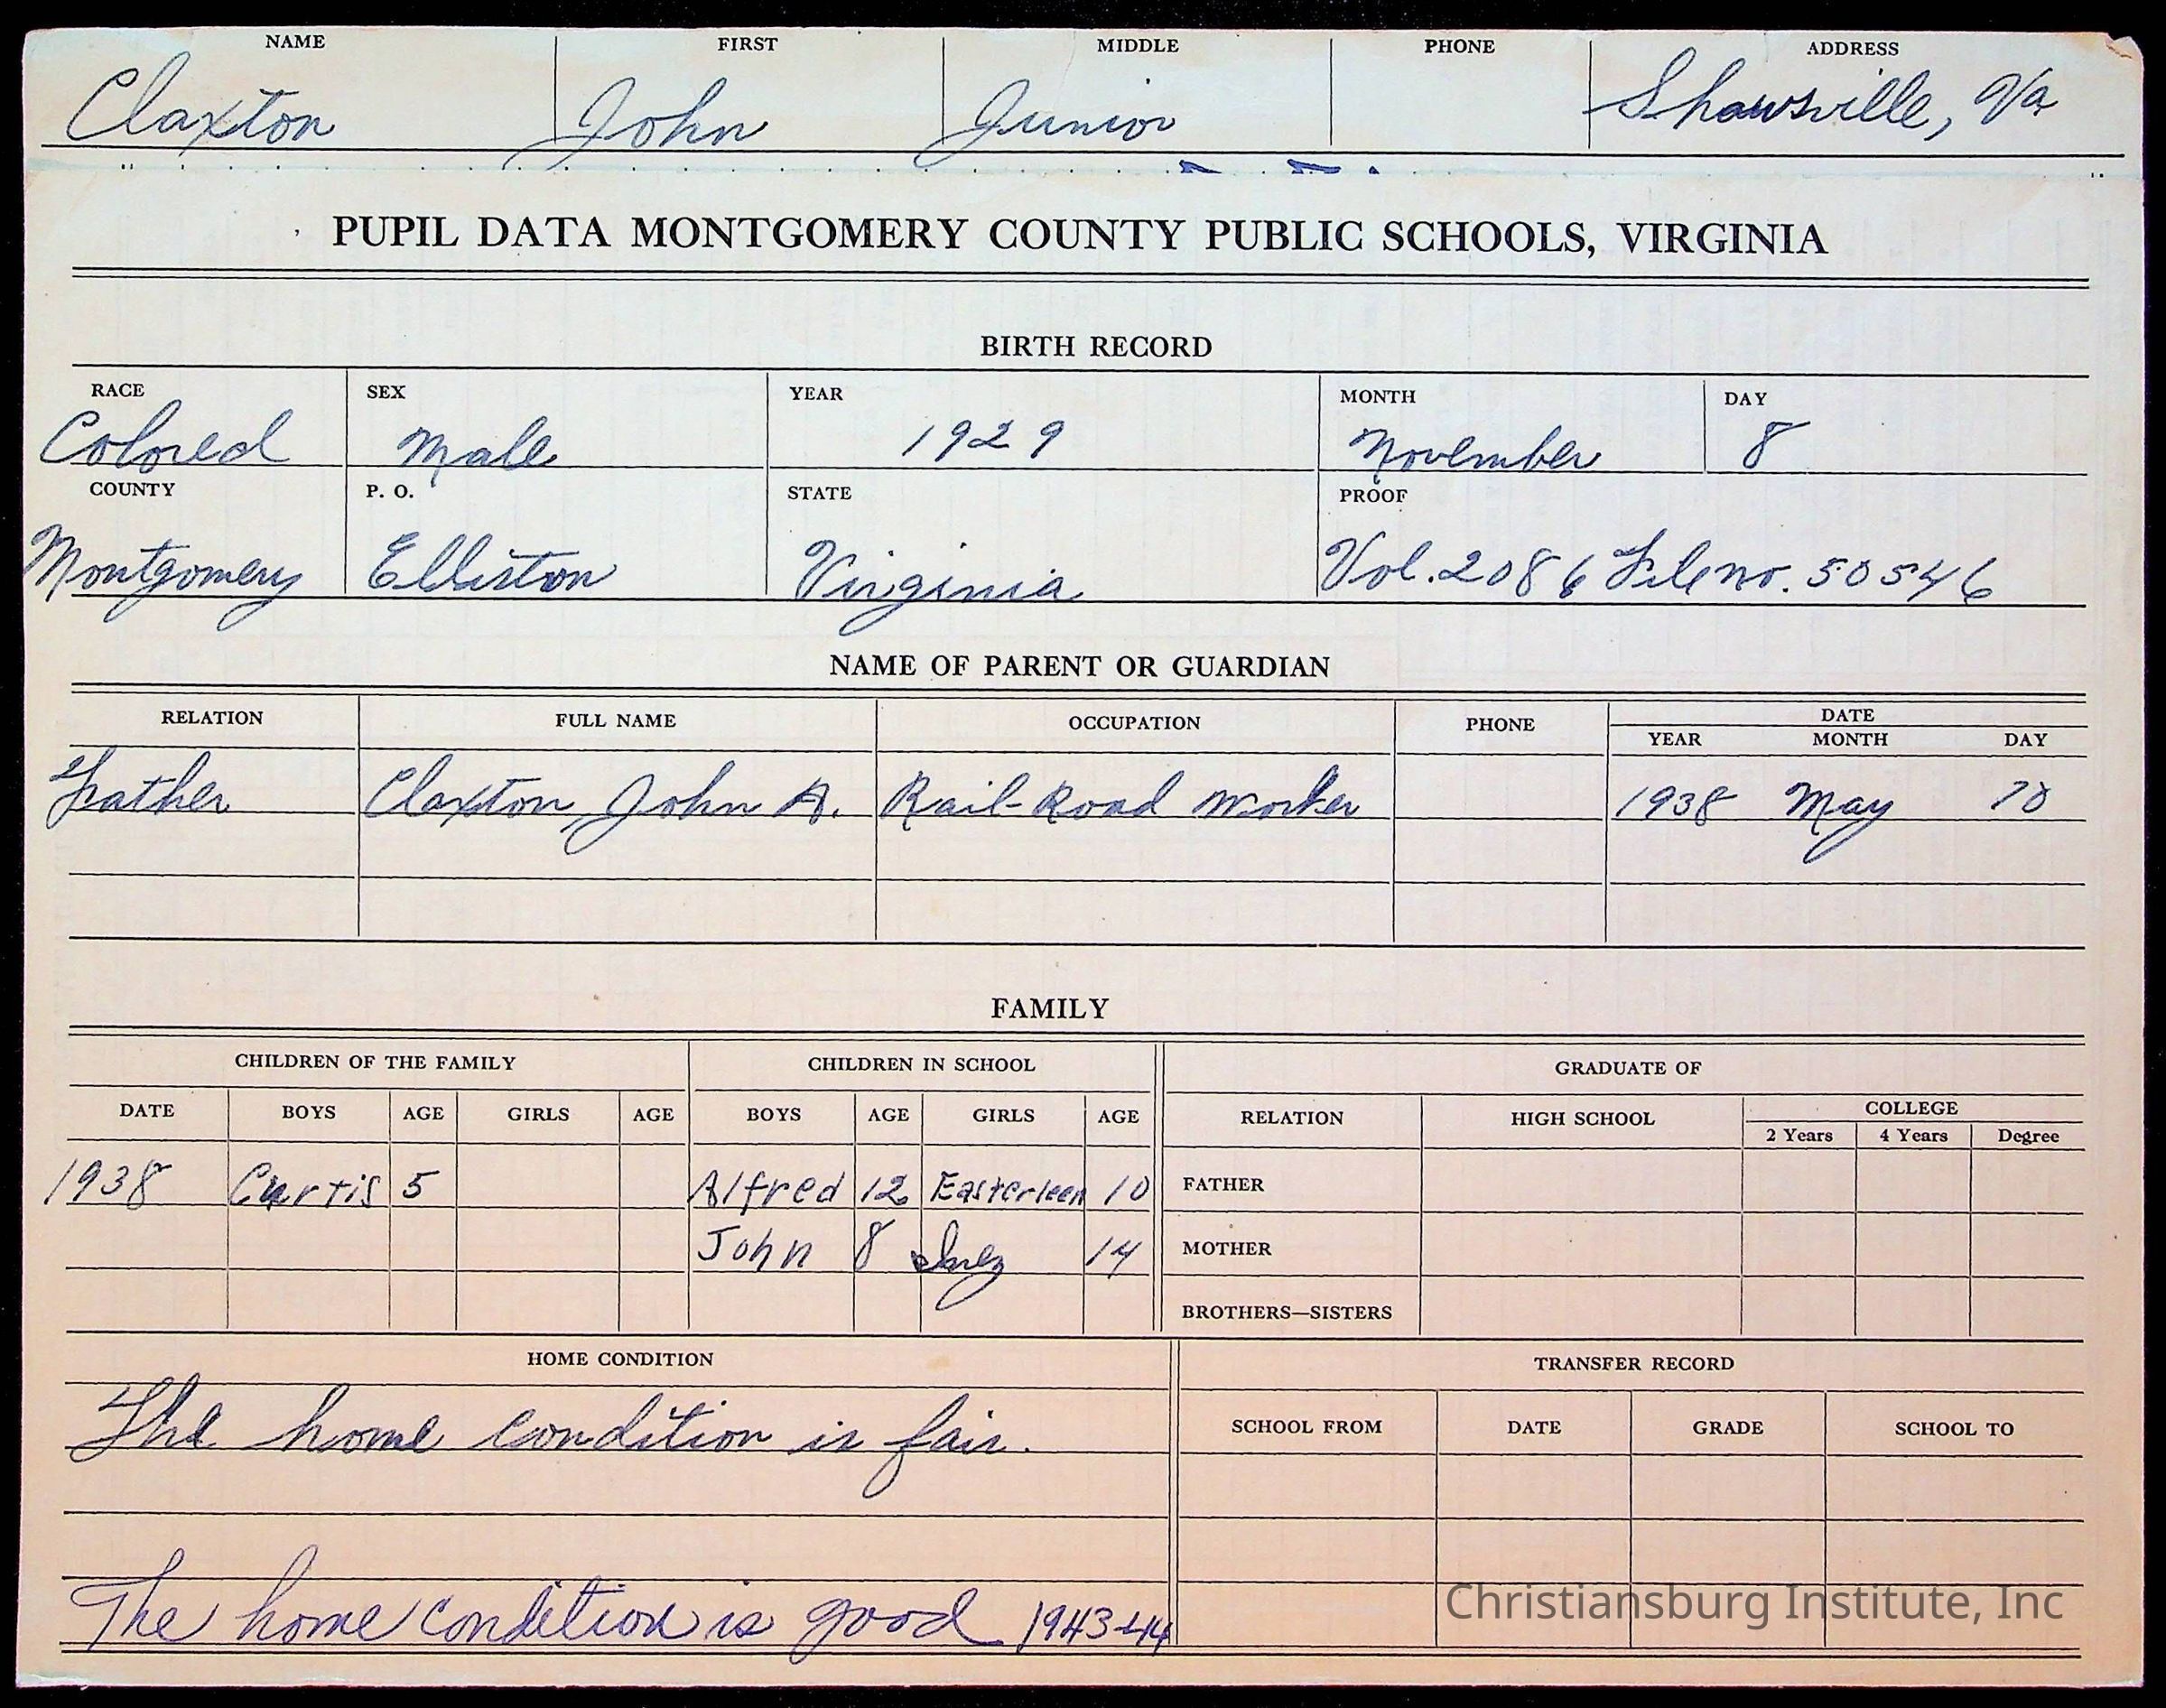 NAME FIRST MIDDLE PHONE ADDRESS
Claxton John Junior Shawsville, Va
PUPIL DATA MONTGOMERY COUNTY PUBLIC SCHOOLS, VIRGINIA
BIRTH RECORD
RACE SEX YEAR MONTH DAY
Colored Male 1929 November 8
COUNTY P. O. STATE PROOF
Montgomery Elliston Virginia Vol. 2086 File no. 50546
NAME OF PARENT OR GUARDIAN
RELATION FULL NAME OCCUPATION PHONE DATE
YEAR MONTH DAY
Father Claxton, John A. Rail-Road Worker 1938 May
FAMILY
CHILDREN OF THE FAMILY CHILDREN IN SCHOOL GRADUATE OF
DATE BOYS AGE GIRLS AGE BOYS AGE GIRLS AGE RELATION HIGH SCHOOL COLLEGE
2 Years 4 Years Degree
1938 Curtis 5 Alfred 12 Easterleen 10 FATHER
John 8 Inez 14 MOTHER
BROTHERS—SISTERS
HOME CONDITION TRANSFER RECORD
The home condition is fair.
SCHOOL FROM DATE GRADE SCHOOL TO
The home condition is good 1943-44
Christiansburg Institute, Inc